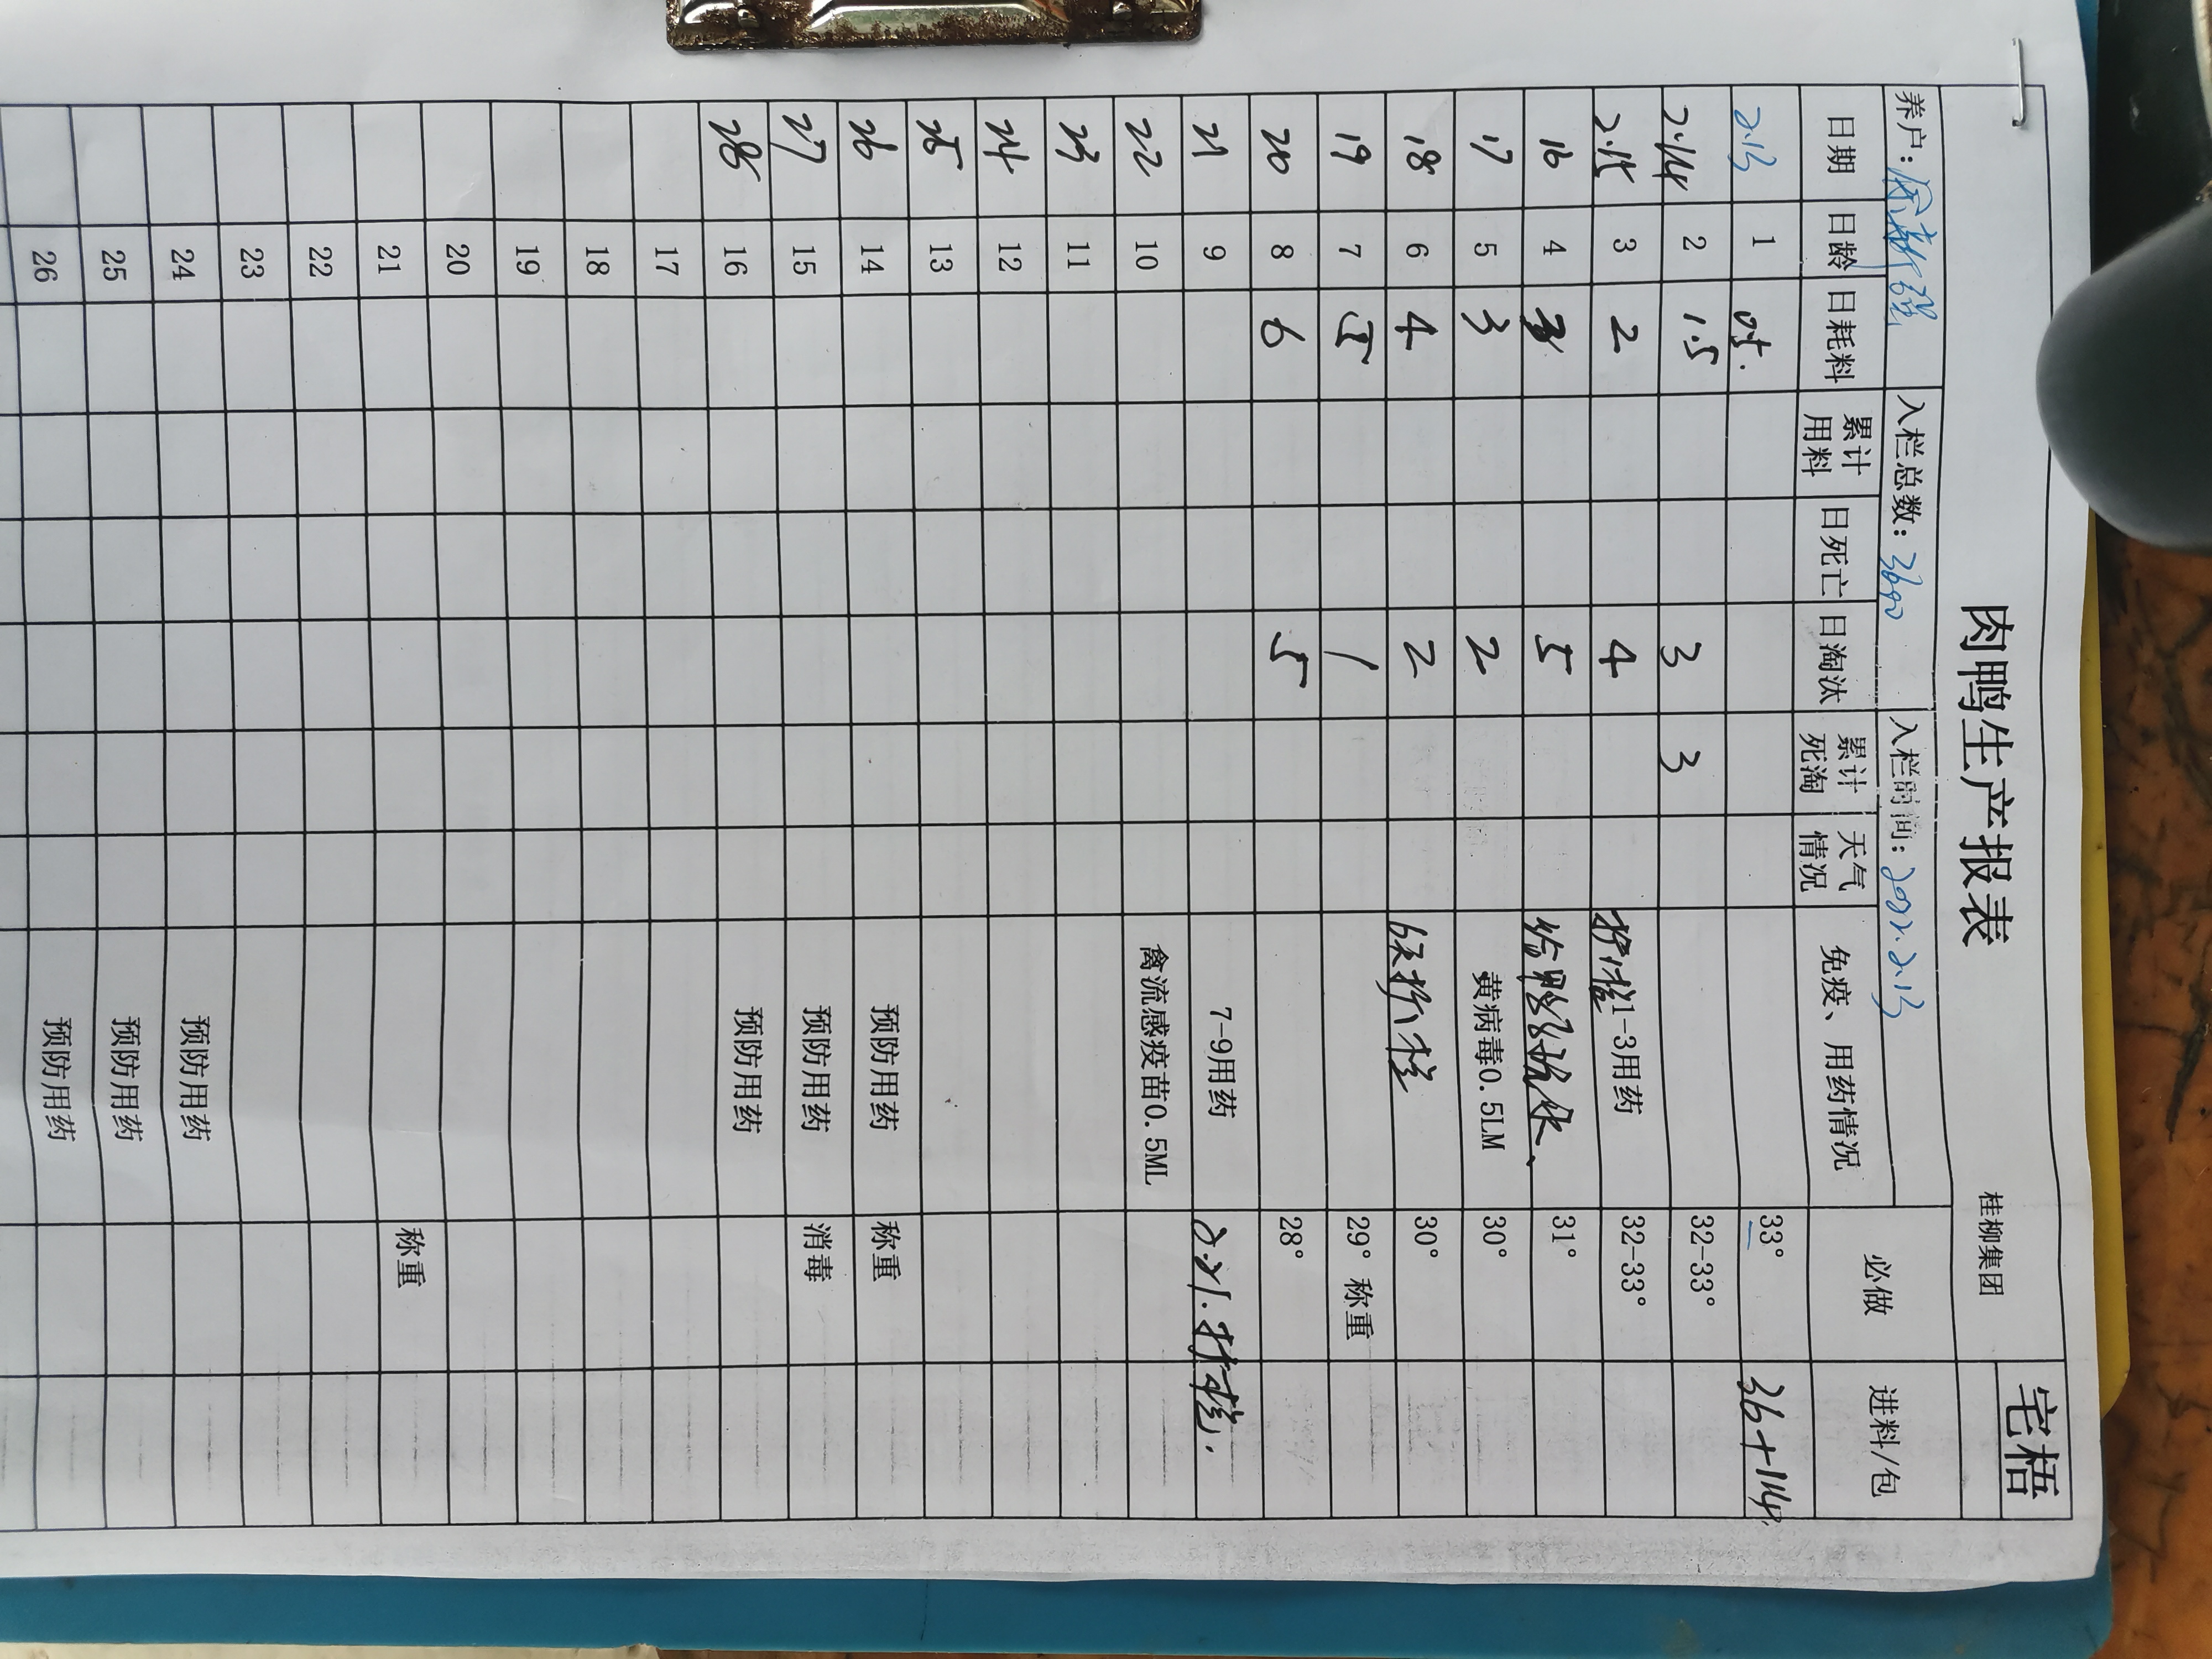 宅梧
肉鸭生产报表 桂柳集团
养户: 入栏总数: 3690 入栏时间: 2022.2.13
日期 日龄 日耗料 累计用料 日死亡 日淘汰 累计死淘 天气情况 免疫、用药情况 必做 进料/包
2.13 1 33° 36+114
2.14 2 1.5 3 3 32-33°
2.15 3 2 4 1-3用药 32-33°
16 4 5 31°
17 5 3 2 黄病毒0.5LM 30°
18 6 4 2 30°
19 7 5 1 29° 称重
20 8 6 5 28°
21 9 7-9用药 2.21.
22 10 禽流感疫苗0.5ML
23 11
24 12
25 13
26 14 预防用药 称重
27 15 预防用药 消毒
28 16 预防用药
17
18
19
20
21 称重
22
23
24 预防用药
25 预防用药
26 预防用药